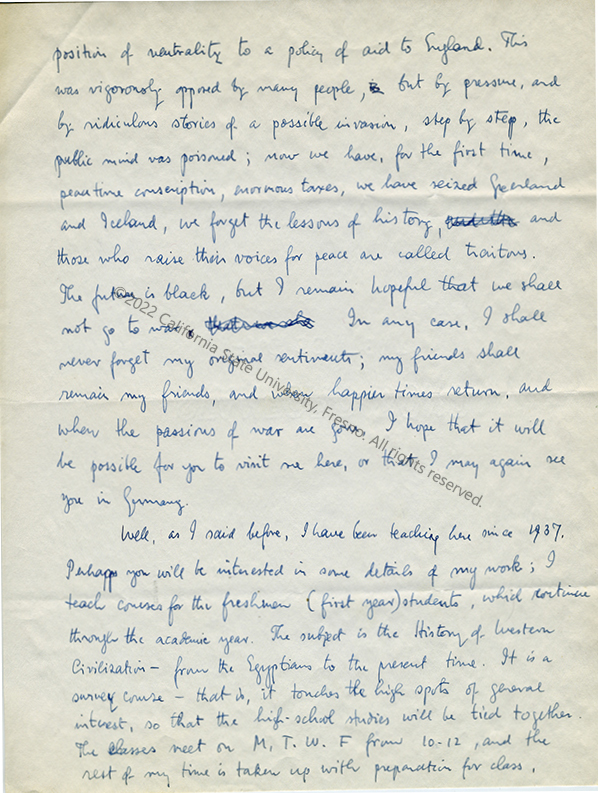 position of neutrality to a policy of aid to England. This
was vigorously opposed by many people, but by pressure, and
by ridiculous stories of a possible invasion, step by step, the
public mind was poisoned; now we have, for the first time,
peacetime conscription, enormous taxes, we have seized Greenland
and Iceland, we forget the lessons of history, and
those who raise their voices for peace are called traitors.
The future is black, but I remain hopeful that we shall
not go to war. In any case, I shall
never forget my original sentiments; my friends shall
remain my friends, and when happier times return, and
when the passions of war are gone, I hope that it will
be possible for you to visit me here, or that I may again see
you in Germany.
Well, as I said before, I have been teaching here since 1937.
Perhaps you will be interested in some details of my work; I
teach courses for the freshmen (first year) students, which continue
through the academic year. The subject is the History of Western
Civilization - from the Egyptians to the present time. It is a
survey course - that is, it touches the high spots of general
interest, so that the high-school studies will be tied together.
The classes meet on M, T. W. F from 10-12, and the
rest of my time is taken up with preparation for class,
©2022 California State University, Fresno. All rights reserved.